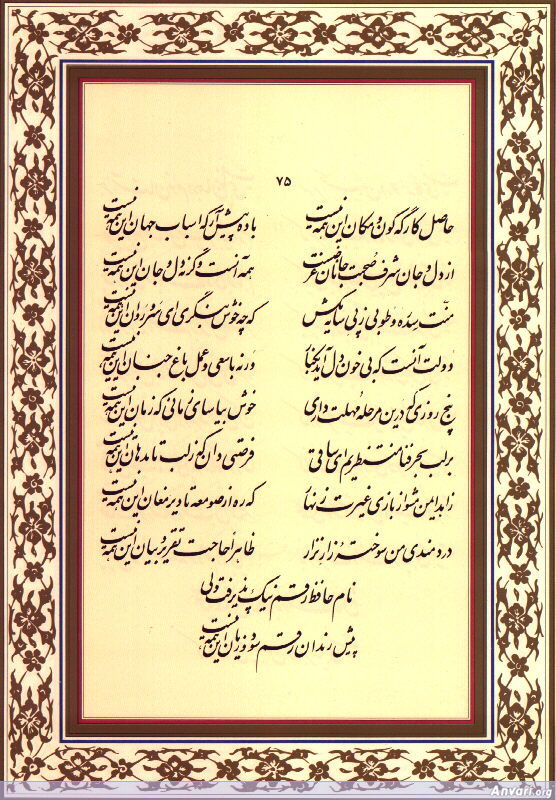 ۷۵
حاصل کارگه کون و مکان این همه نیست باده پیش آر که اسباب جهان این همه نیست
از دل و جان شرف صحبت جانان غرضست همه آنست و گرنه دل و جان این همه نیست
منت سدره و طوبی ز پی سایه مکش که چه خوش بنگری ای سرو روان این همه نیست
دولت آنست که بی خون دل آید بکنار ورنه با سعی و عمل باغ جنان این همه نیست
پنج روزی که درین مرحله مهلت داری خوش بیاسای زمانی که زمان این همه نیست
بر لب بحر فنا منتظریم ای ساقی فرصتی دان که ز لب تا بدهان این همه نیست
زاهد ایمن مشو از بازی غیرت زنهار که ره از صومعه تا دیر مغان این همه نیست
دردمندی من سوختهٔ زار نزار ظاهراً حاجت تقریر و بیان این همه نیست
نام حافظ رقم نیک پذیرفت ولی
پیش رندان رقم سود و زیان این همه نیست
Anvari.org